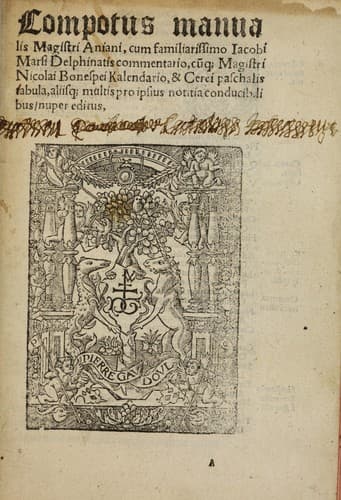 Compotus manua
lis Magistri Aniani, cum familiarissimo Iacobi
Marsi Delphinatis commentario, cūq; Magistri
Nicolai Bonespei Kalendario, & Cerei paschalis
fabula, aliisq; multis pro ipsius notitia conducibili
bus/nuper editus,
PIERRE GA
DOVL
A